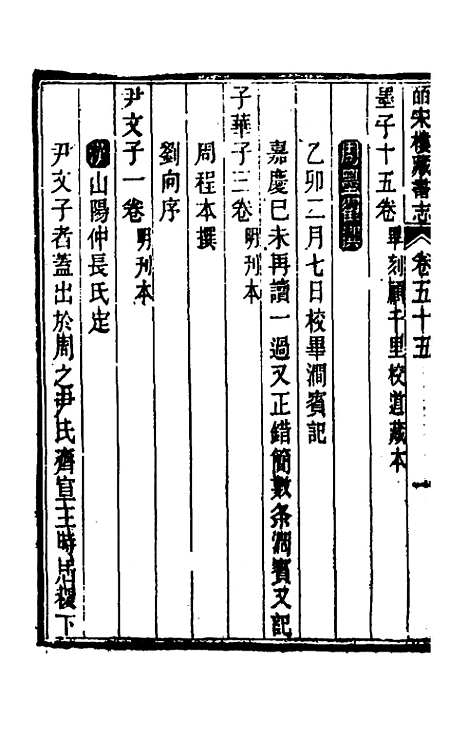 皕宋樓藏書志 卷五十五 一
墨子十五卷 畢刻顧千里校道藏本
周墨翟撰
乙卯二月七日校畢澗賓記
嘉慶己未再讀一過又正錯簡數条澗賓又記
子華子三卷 明刊本
周程本撰
劉向序
尹文子一卷 明刊本
山陽仲長氏定
尹文子者蓋出於周之尹氏齊宣王時居稷下